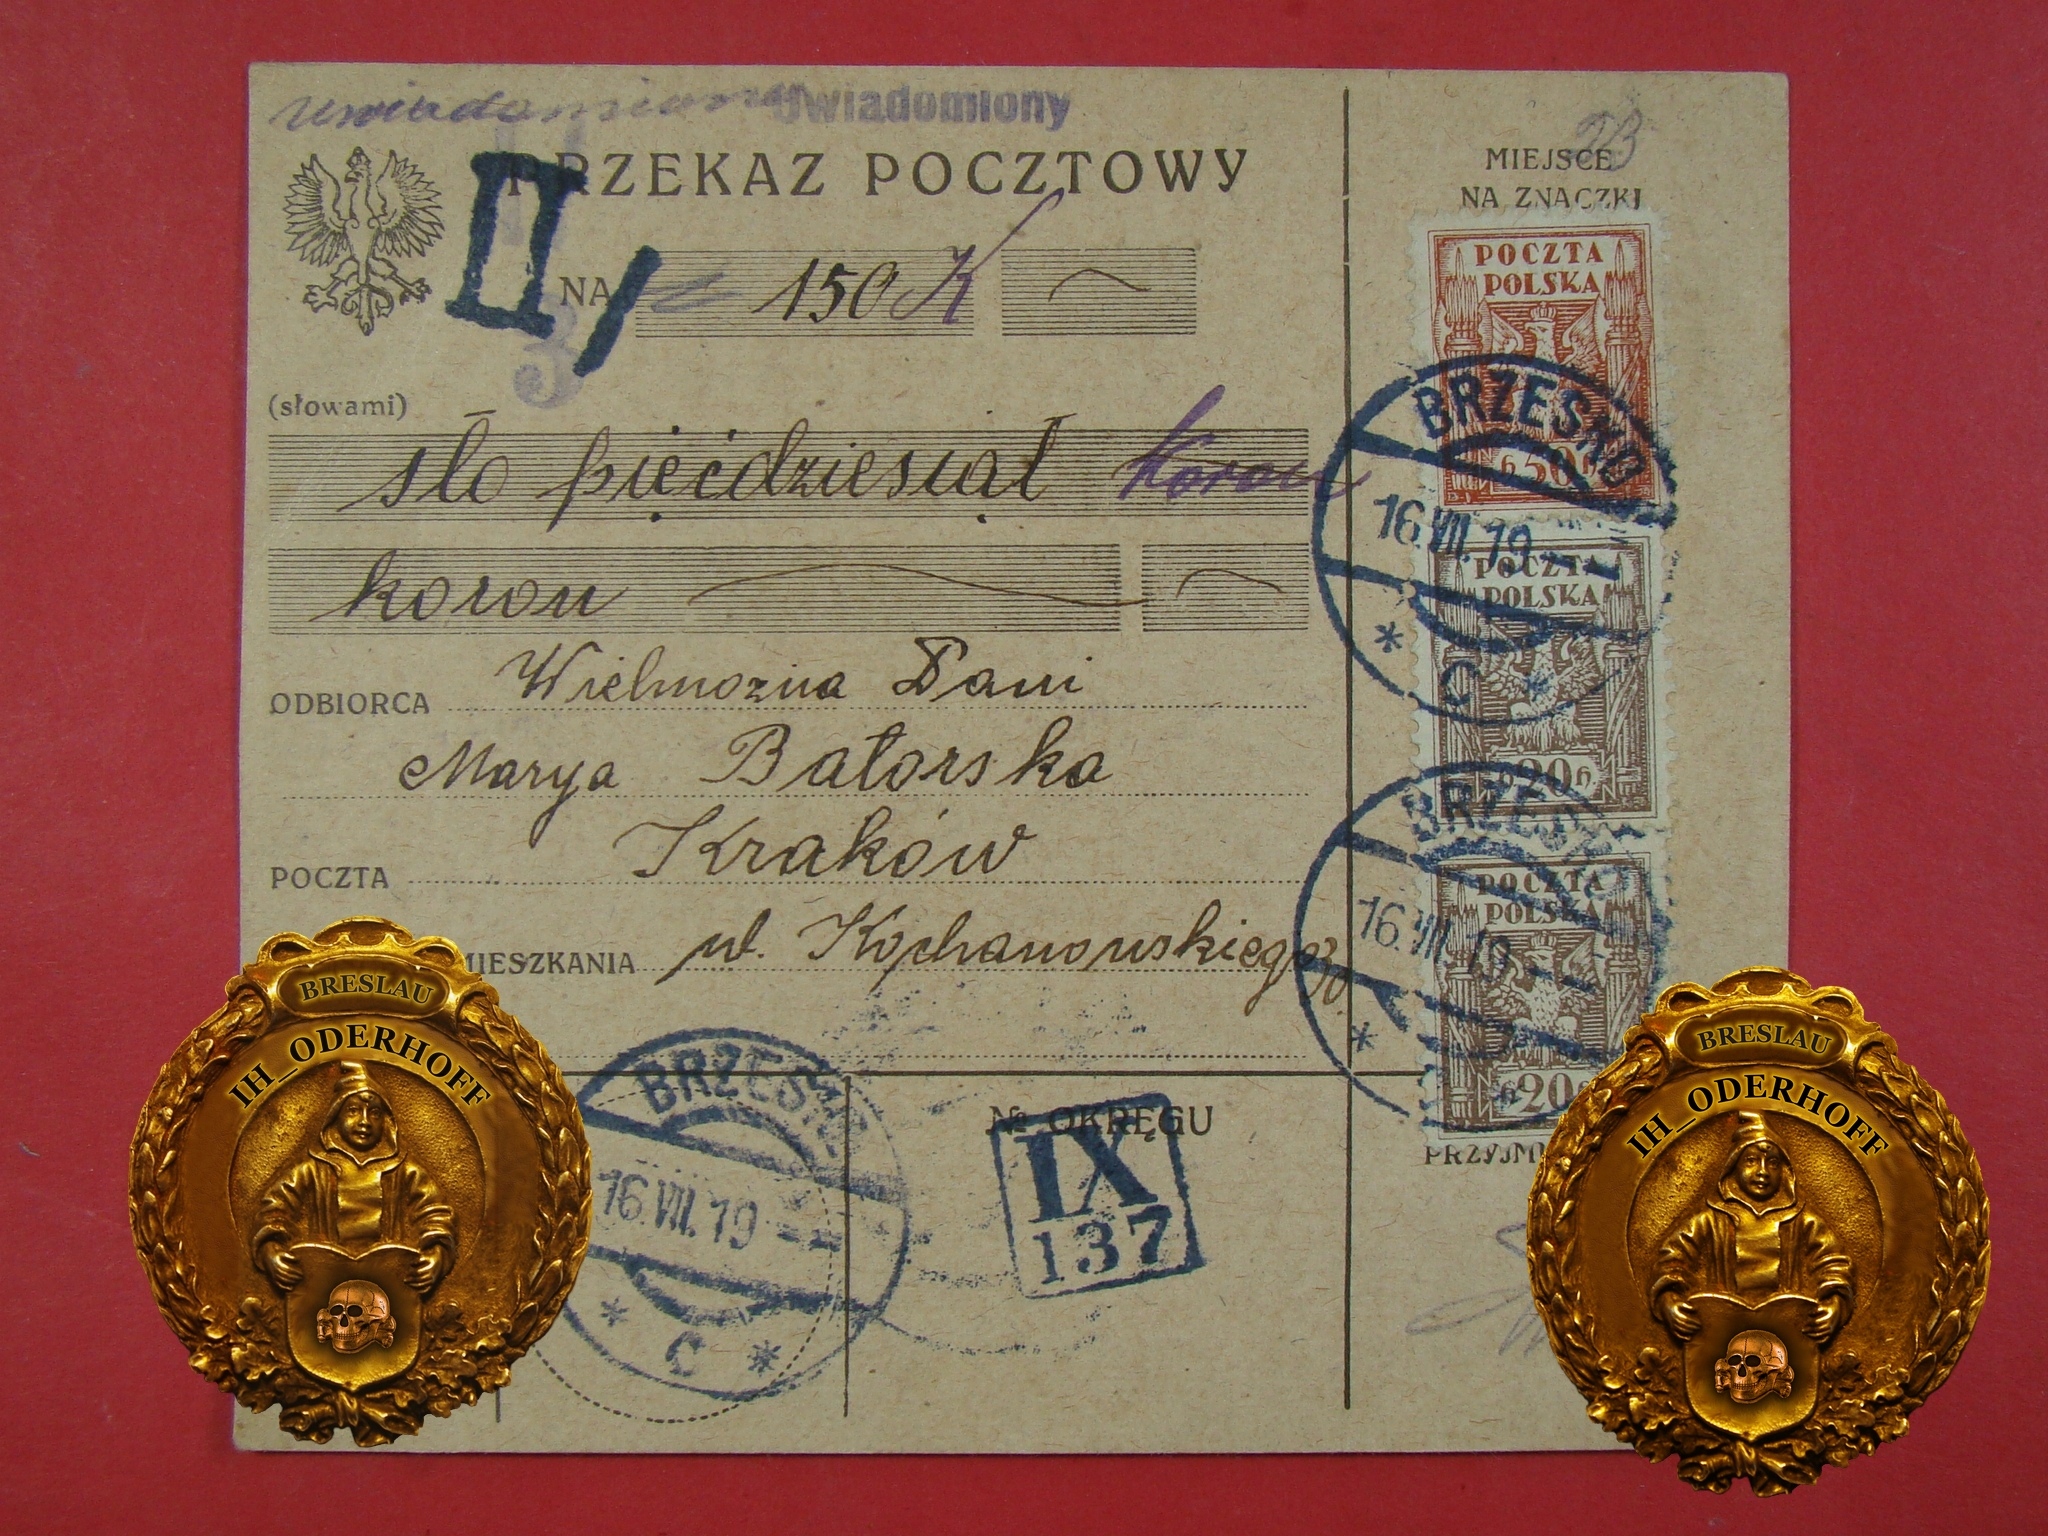 Uwiadomiony Uwiadomiony
PRZEKAZ POCZTOWY
II/
3
NA 150 K
(słowami)
sto pięćdziesiąt koron
koron
ODBIORCA Wielmożna Pani
Marya Batorska
POCZTA Kraków
MIESZKANIA ul. Kochanowskiego
MIEJSCE
NA ZNACZKI
POCZTA
POLSKA
50
BRZESKO
16.VII.19
* C *
POCZTA
POLSKA
20
BRZESKO
16.VII.19
*
POCZTA
POLSKA
20
PRZYJM
BRZESKO
16.VII.19
* C *
№ OKRĘGU
IX
137
BRESLAU
IH_ODERHOFF
BRESLAU
IH_ODERHOFF